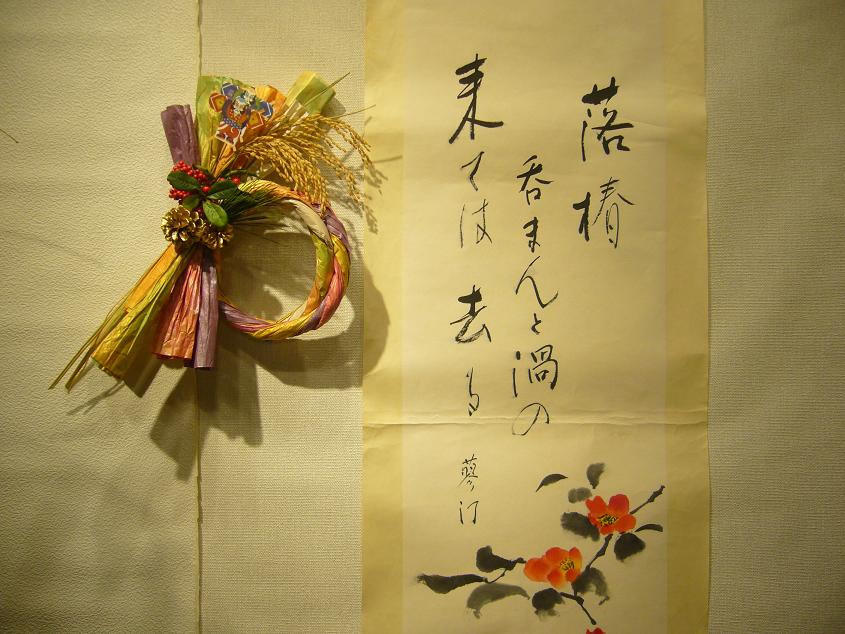 落椿
呑まんと渦の
来ては去る
蓼汀